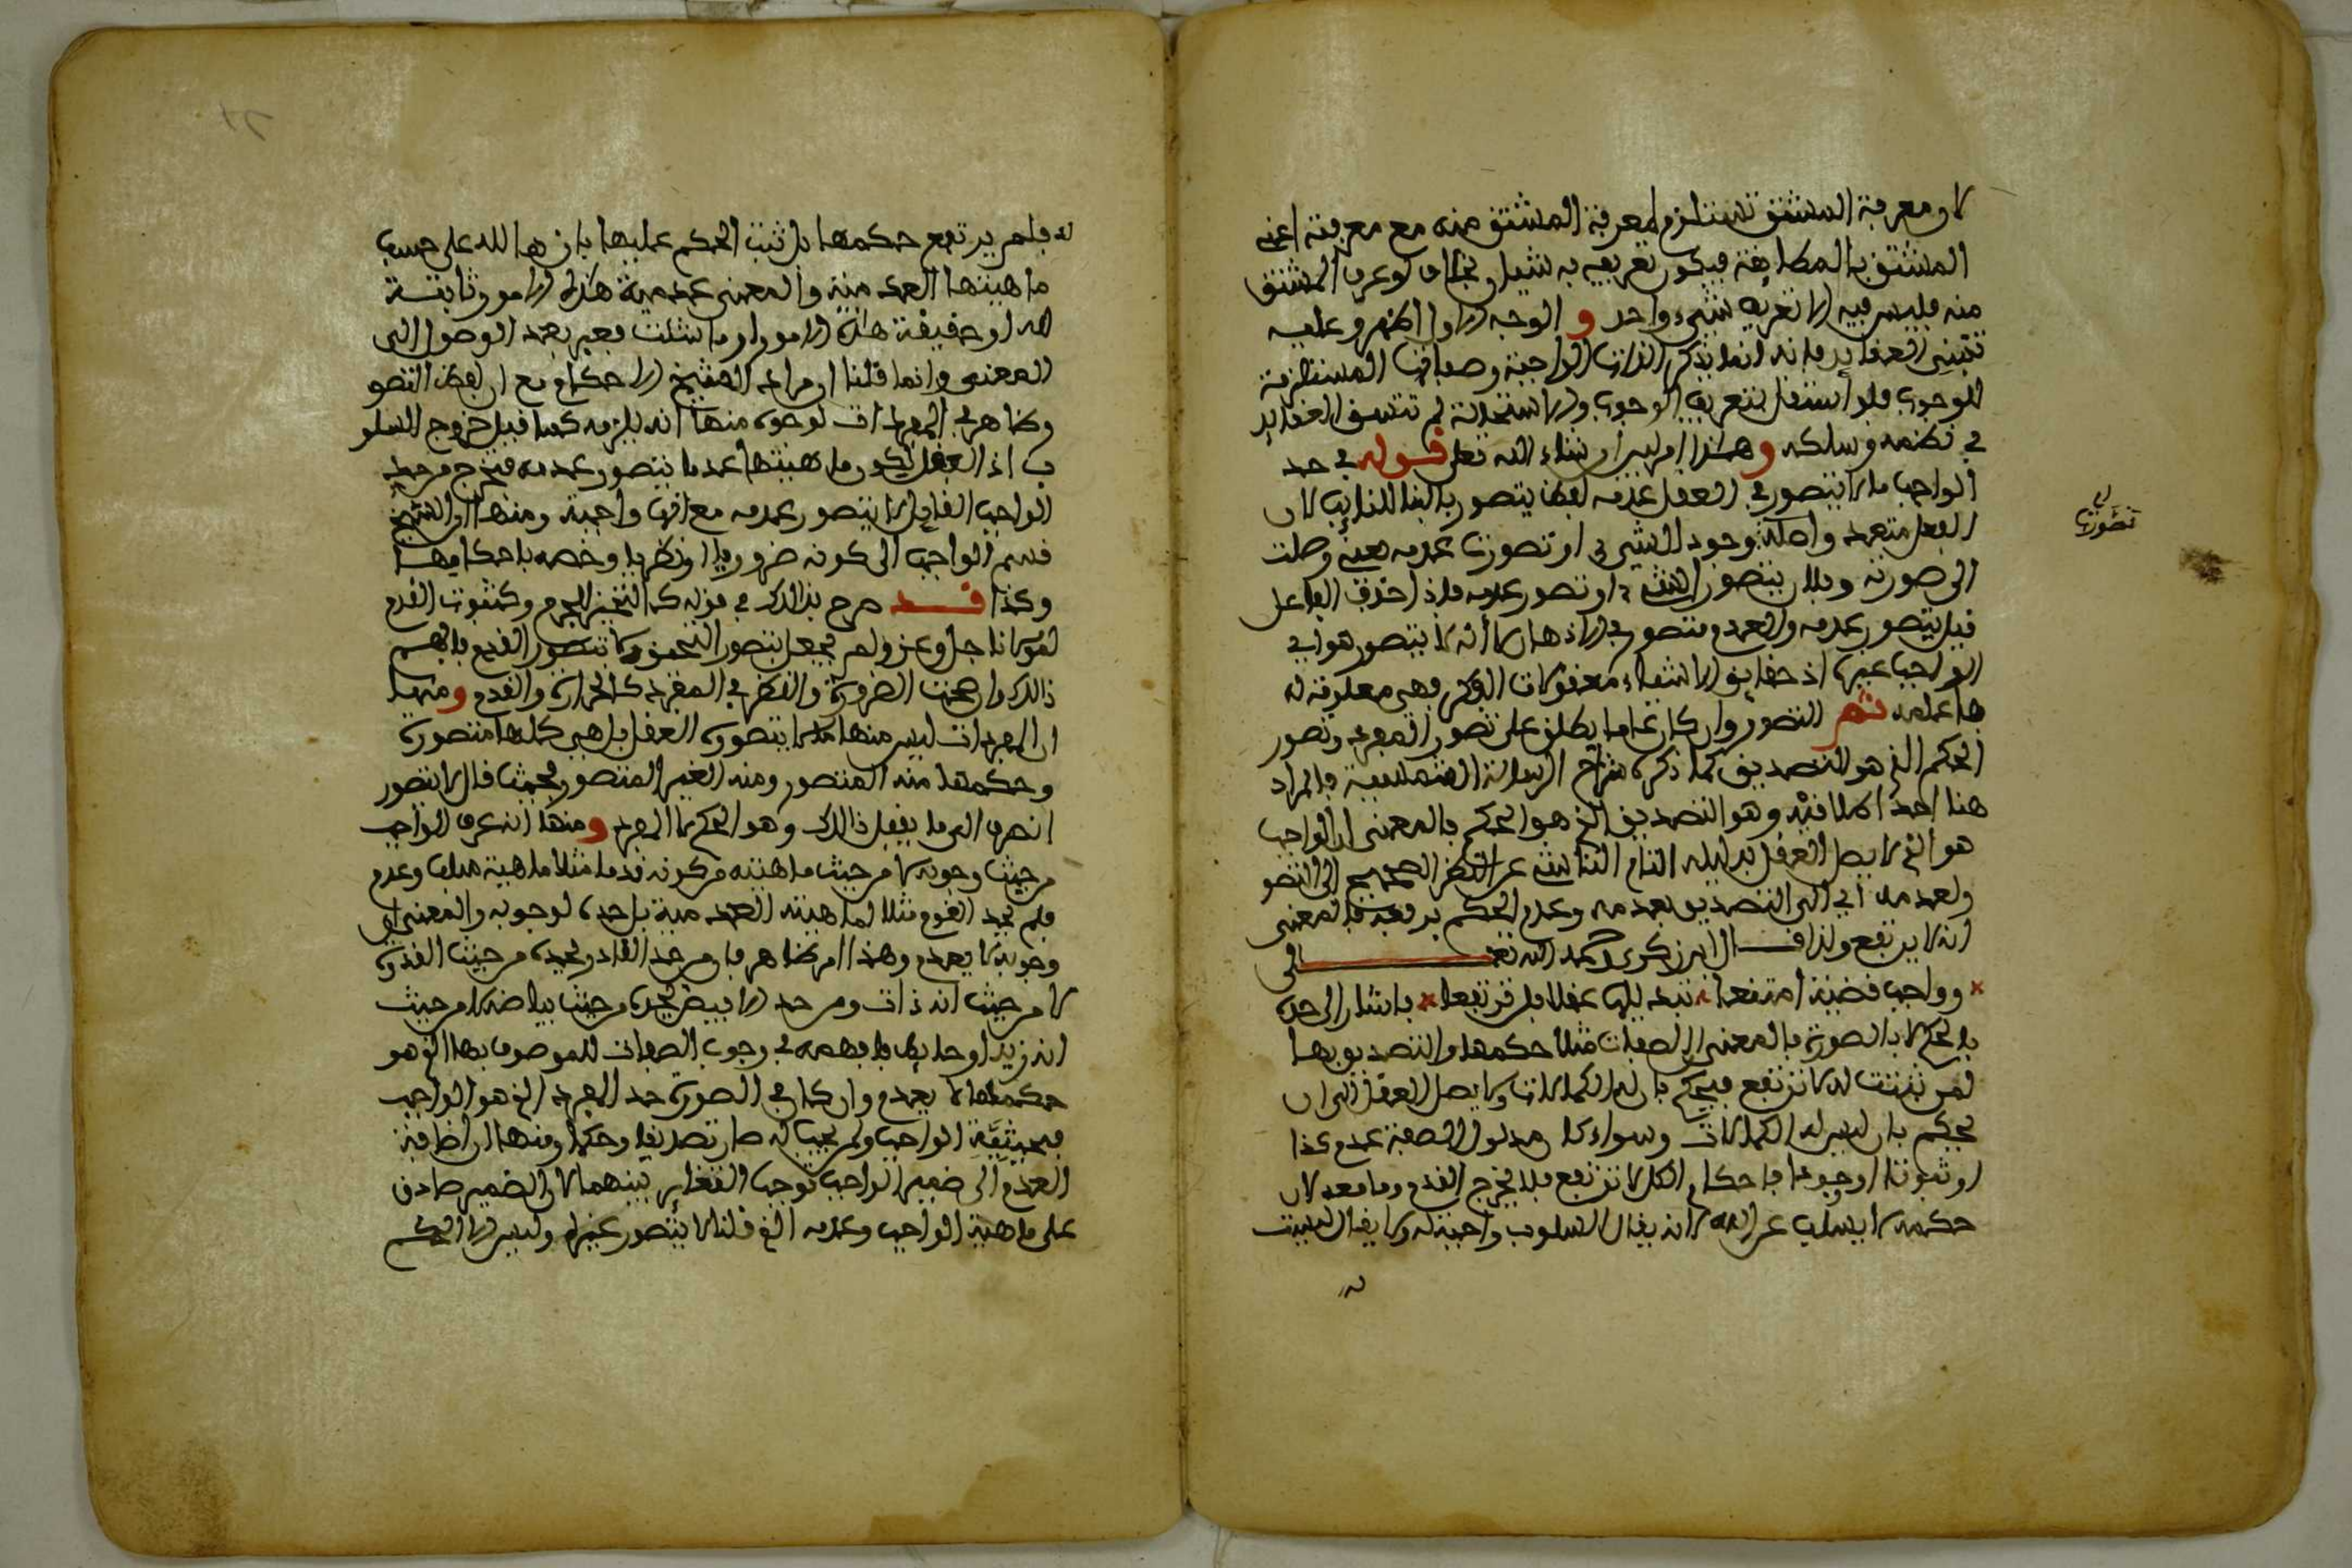 لان معرفة المشتق تستلزم معرفة المشتق منه مع معرفته اعني
المشتق بالمطابقة فيكون تعريفه به شيئان بخلاف لو عرف المشتق
منه فليس فيه الا تعريف شيء واحد و الوجه الاول اظهر وعليه
تنبني العقايد فانه انما يذكر الذات الواجبة وصفاتها المستلزمة
للوجوب فلو اشتغل بتعريف الوجوب والاستحالة لم تتسق العقايد
في نظمه وسلكه و هكذا امر ليس ان شاء الله تعلى قوله في حد
الواجب ما لا يتصور في العقل عدمه لفظ يتصور بالبنا للنايب لان
الفعل متعد واصله وجود الشيء او تصورت عدمه بمعنى وصلت
الى صورته وبلان يتصور الشيء او تصور عدمه فاذا حذف الفاعل
قيل يتصور عدمه والعدم متصور في الاذهان لا انه لا يتصور هو اي
الواجب عينها اذ حقايق الاشياء معقولات الفكر فهي معلومة له
ها عليه ثم التصور وان كان عاما يطلق على تصور المفرد وتصور
الحكم الذي هو التصديق كما ذكره شراح الرسالة الشمسية فالمراد
هنا احد اطلاقيه وهو التصديق الذي هو الحكم فالمعنى ان الواجب
هو الذي لا يصل العقل بدليله التام الناشئ عن النظر الصحيح الى التصو
ولعدمه اي الى التصديق بعدمه وعدم الحكم برفعه فالمعنى
انه لا يرتفع ولذا قال ابن زكري رحمه الله تعالى
وواجب قضية امتنعا نبه ليها عقلا بان ترتفعا فاشار الى حده
بالحكم لا بالصورة فالمعنى ان الصفات مثلا حكمها والتصديق بها
لمن ثبتت له لا ترتفع فيحكم بان له الكمالات ولا يصل العقل الى ان
يحكم بان ليس له الكمالات وسواء كان مدلول الصفة عدم كذا
او ثبوتا او وجودا فاحكام الكل لا ترتفع فلا يخرج القدم وما معه لان
حكمه لا يسلب عن الله لانه يقال السلوب واجبة له ولا يقال ليست
له
تصورت
له فلم يرتفع حكمها بل ثبت الحكم عليها بانها لله على حسب
ماهيتها العدمية والمعنى عدمية هذه الامور ثابتة
لله او حقيقة هذه الامور او ما شئت فعبر بعد الوصول الى
المعنى وانما قلنا ان مراد الشيخ الاحكام مع ان لفظ التصو
وظاهر في المفردات لوجوه منها انه يلزمه كما قيل خروج السلو
ب اذ العقل لكون ماهيتها عدما يتصور عدمه فتخرج من حد
الواجب القايل لا يتصور عدمه مع انها واجبة ومنها ان الشيخ
قسم الواجب الى كونه ضروريا او نظريا وخصه باحكامها
وكذا قد صرح بذالك في قوله كالتحيز للجرم وكثبوت القدم
لمولانا جل وعز ولم يجعل يتصور التحيز ولا يتصور القدم فافهم
ذالك وان صحت الضرورة والنظر في المفرد كالحرارة والقدم ومنها
ان المفردات ليس منها ما لا يتصوره العقل بل هي كلها متصورة
وحكمها منه المتصور ومنه الغير المتصور فحيث قال لا يتصور
انصرف الى ما يقبل ذالك وهو الحكم لا المفرد ومنها انه عرف الواجب
من حيث وجوبه لا من حيث ماهيته من كونه قدما مثلا ماهية سلب وعدم
فلم يحد القدم مثلا لماهيته العدمية بل حده لوجوبه والمعنى ان
وجوبه لا يعدم وهذا امر ظاهر فان من حد القادر يحده من حيث القدرة
لا من حيث انه ذات ومن حد الابيض يحده من حيث بياضه لا من حيث
انه زيد او حايط فافهمه في وجوب الصفات للموصوف بها الذي هو
حكمها لا يعدم وان كان في الصورة حد المفرد الذي هو الواجب
فبحيثية الواجب ولم يجب له صار تصديقا وحكما ومنها ان اضافة
العدم الى ضمير الواجب توجب التغاير بينهما لان الضمير صادق
على ماهية الواجب وعدمه الذي قلنا لا يتصور غيره وليس الا الحكم